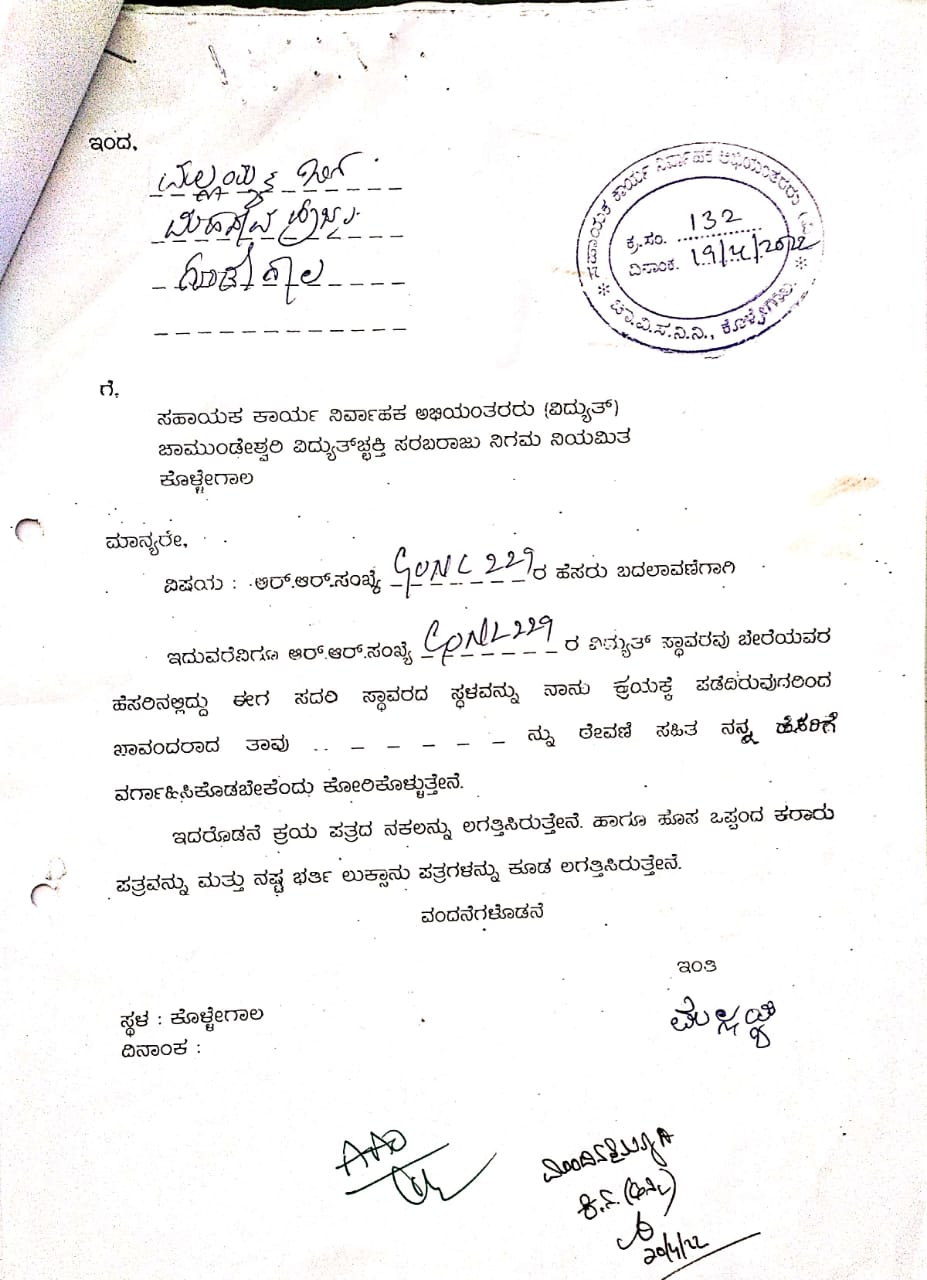 ಇಂದ,
ಗೂಡೆಗಾಲ
ಸಹಾಯಕ ಕಾರ್ಯ ನಿರ್ವಾಹಕ ಅಭಿಯಂತರರು
ಕ್ರ.ಸಂ. 132
ದಿನಾಂಕ. 19/4/2022
ಚಾ.ವಿ.ಸ.ನಿ.ನಿ., ಕೊಳ್ಳೇಗಾಲ.
ಗೆ,
ಸಹಾಯಕ ಕಾರ್ಯ ನಿರ್ವಾಹಕ ಅಭಿಯಂತರರು (ವಿದ್ಯುತ್)
ಚಾಮುಂಡೇಶ್ವರಿ ವಿದ್ಯುತ್‌ಚ್ಛಕ್ತಿ ಸರಬರಾಜು ನಿಗಮ ನಿಯಮಿತ
ಕೊಳ್ಳೇಗಾಲ
ಮಾನ್ಯರೇ,
ವಿಷಯ : ಆರ್.ಆರ್.ಸಂಖ್ಯೆ GUNL 229 ರ ಹೆಸರು ಬದಲಾವಣೆಗಾಗಿ
ಇದುವರೆವಿಗೂ ಆರ್.ಆರ್.ಸಂಖ್ಯೆ 229 ರ ವಿದ್ಯುತ್ ಸ್ಥಾವರವು ಬೇರೆಯವರ
ಹೆಸರಿನಲ್ಲಿದ್ದು ಈಗ ಸದರಿ ಸ್ಥಾವರದ ಸ್ಥಳವನ್ನು ನಾನು ಕ್ರಯಕ್ಕೆ ಪಡೆದಿರುವುದರಿಂದ
ಖಾವಂದರಾದ ತಾವು .. _ _ _ _ _ _ ನ್ನು ಠೇವಣಿ ಸಹಿತ ನನ್ನ ಹೆಸರಿಗೆ
ವರ್ಗಾಹಿಸಿಕೊಡಬೇಕೆಂದು ಕೋರಿಕೊಳ್ಳುತ್ತೇನೆ.
ಇದರೊಡನೆ ಕ್ರಯ ಪತ್ರದ ನಕಲನ್ನು ಲಗತ್ತಿಸಿರುತ್ತೇನೆ. ಹಾಗೂ ಹೊಸ ಒಪ್ಪಂದ ಕರಾರು
ಪತ್ರವನ್ನು ಮತ್ತು ನಷ್ಟ ಭರ್ತಿ ಲುಕ್ಸಾನು ಪತ್ರಗಳನ್ನು ಕೂಡ ಲಗತ್ತಿಸಿರುತ್ತೇನೆ.
ವಂದನೆಗಳೊಡನೆ
ಇಂತಿ
ಸ್ಥಳ : ಕೊಳ್ಳೇಗಾಲ
ದಿನಾಂಕ :
AAO
20/4/22